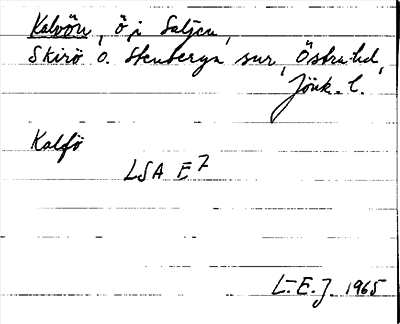 Kalvön, ö i Saljen,
Skirö o. Stenberga snr, Östra hd,
Jönk. l.
Kalfö
LSA E7
L-E.J. 1965